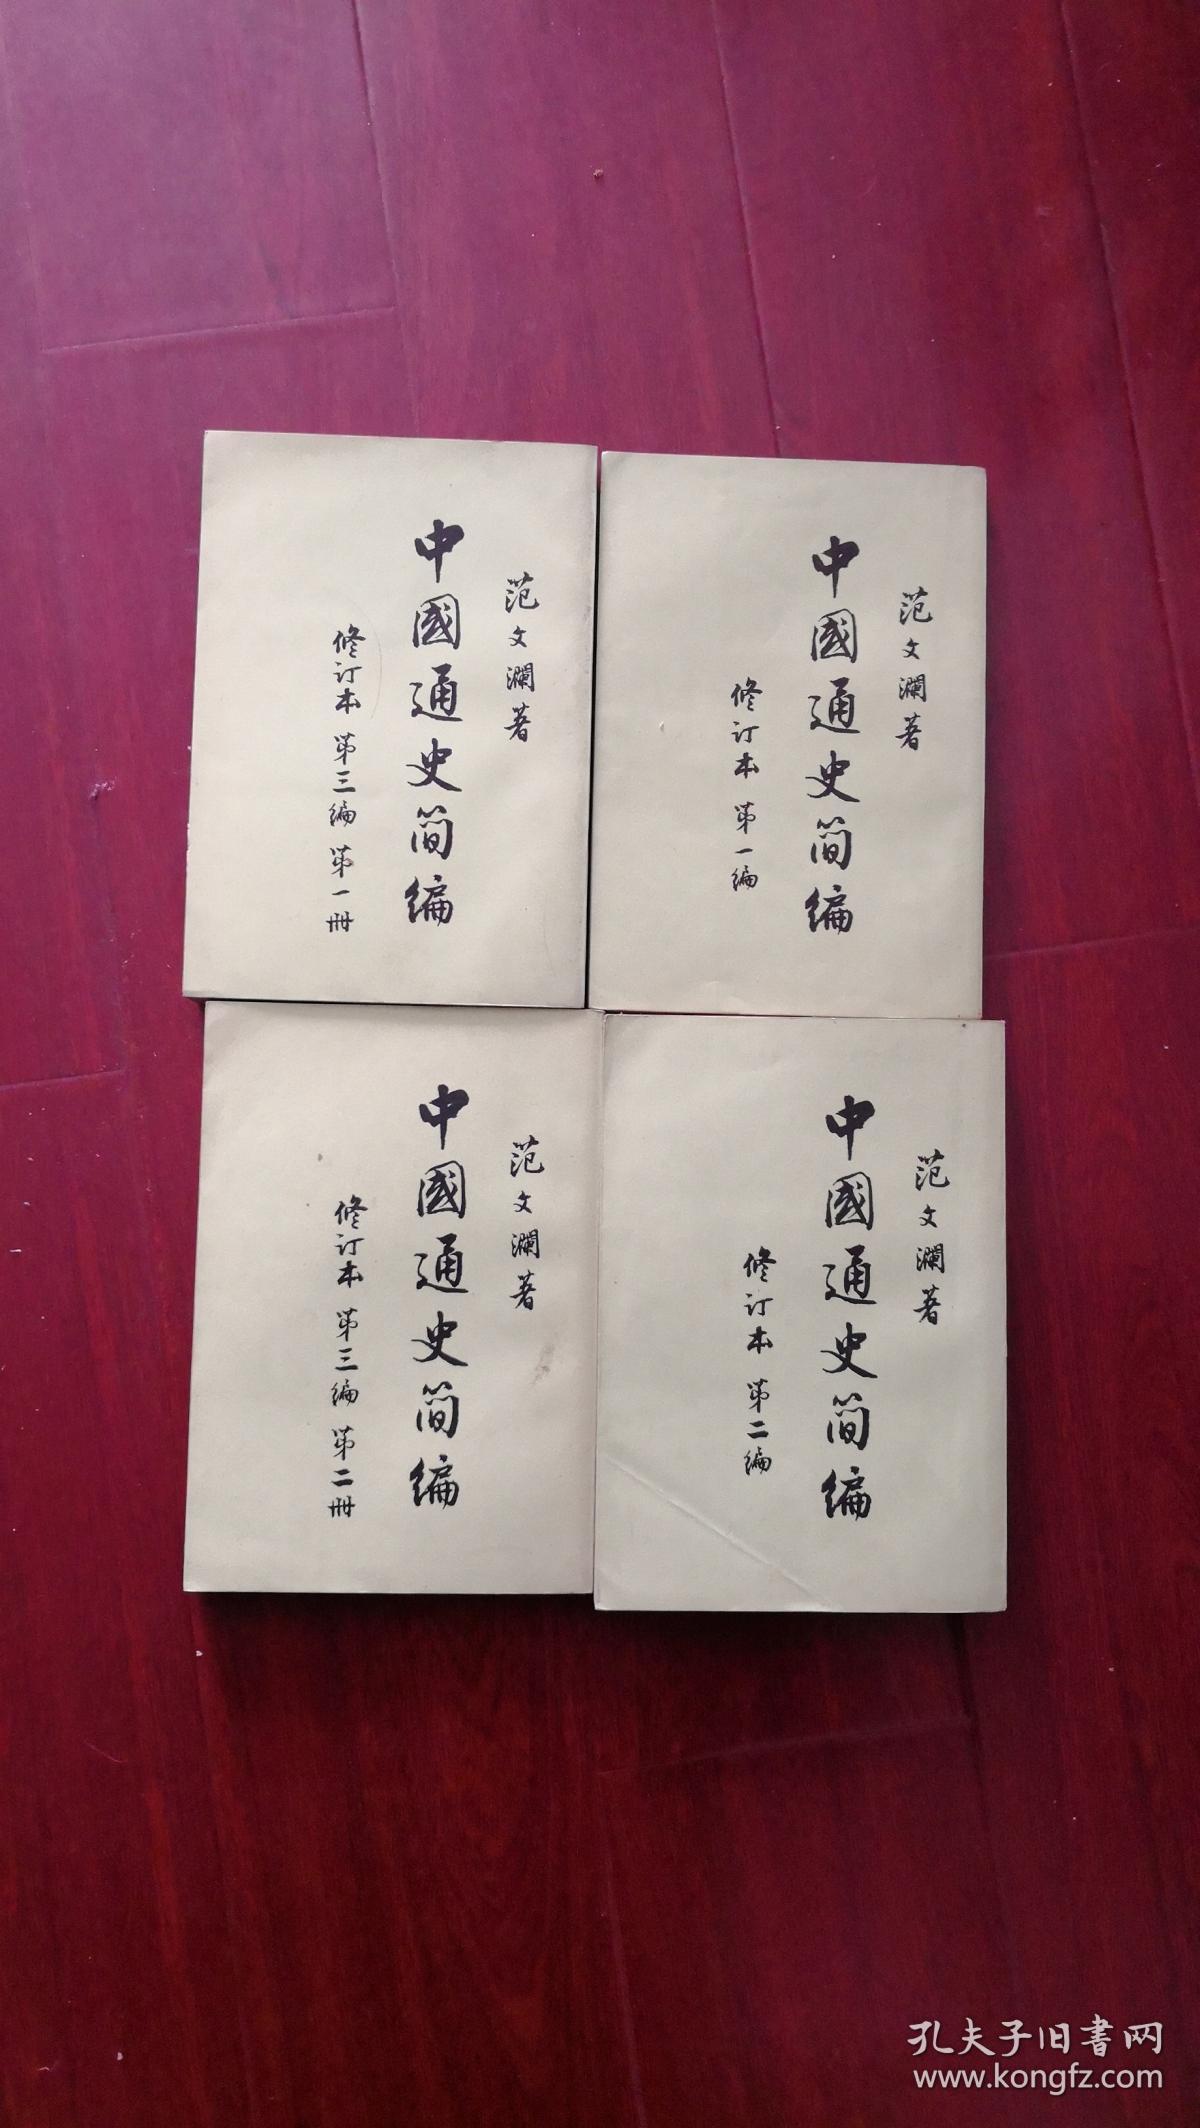 范文瀾著
中國通史简编
修订本 第三编 第一册
范文瀾著
中國通史简编
修订本 第一编
范文瀾著
中國通史简编
修订本 第三编 第二册
范文瀾著
中國通史简编
修订本 第二编
孔夫子旧書网
www.kongfz.com